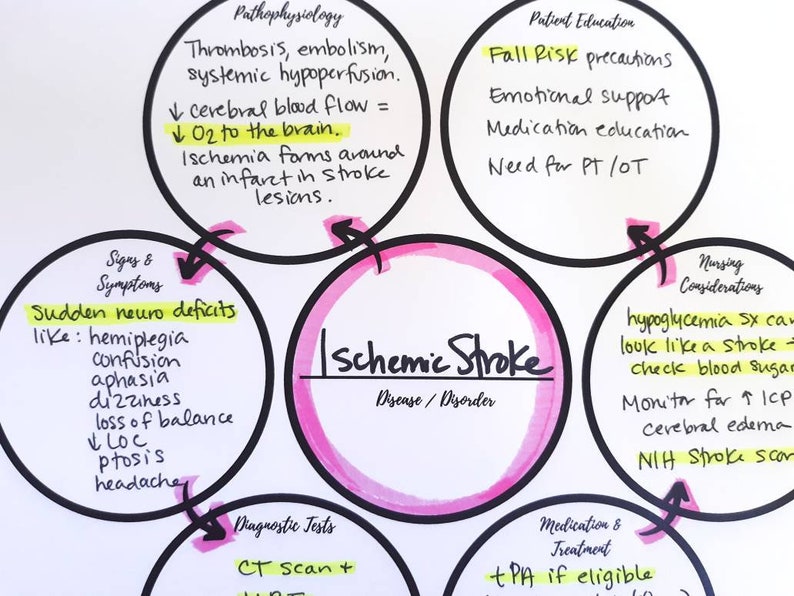 Pathophysiology
Thrombosis, embolism,
systemic hypoperfusion.
↓ cerebral blood flow =
↓ O2 to the brain.
Ischemia forms around
an infarct in stroke
lesions.
Patient Education
Fall Risk precautions
Emotional support
Medication education
Need for PT/OT
Signs &
Symptoms
Sudden neuro deficits
like: hemiplegia
confusion
aphasia
dizziness
loss of balance
↓ LOC
ptosis
headache
Ischemic Stroke
Disease / Disorder
Nursing
Considerations
hypoglycemia sx can
look like a stroke
check blood sugar
Monitor for ↑ ICP
cerebral edema
NIH Stroke
Diagnostic Tests
CT scan +
Medication &
Treatment
tPA if eligible